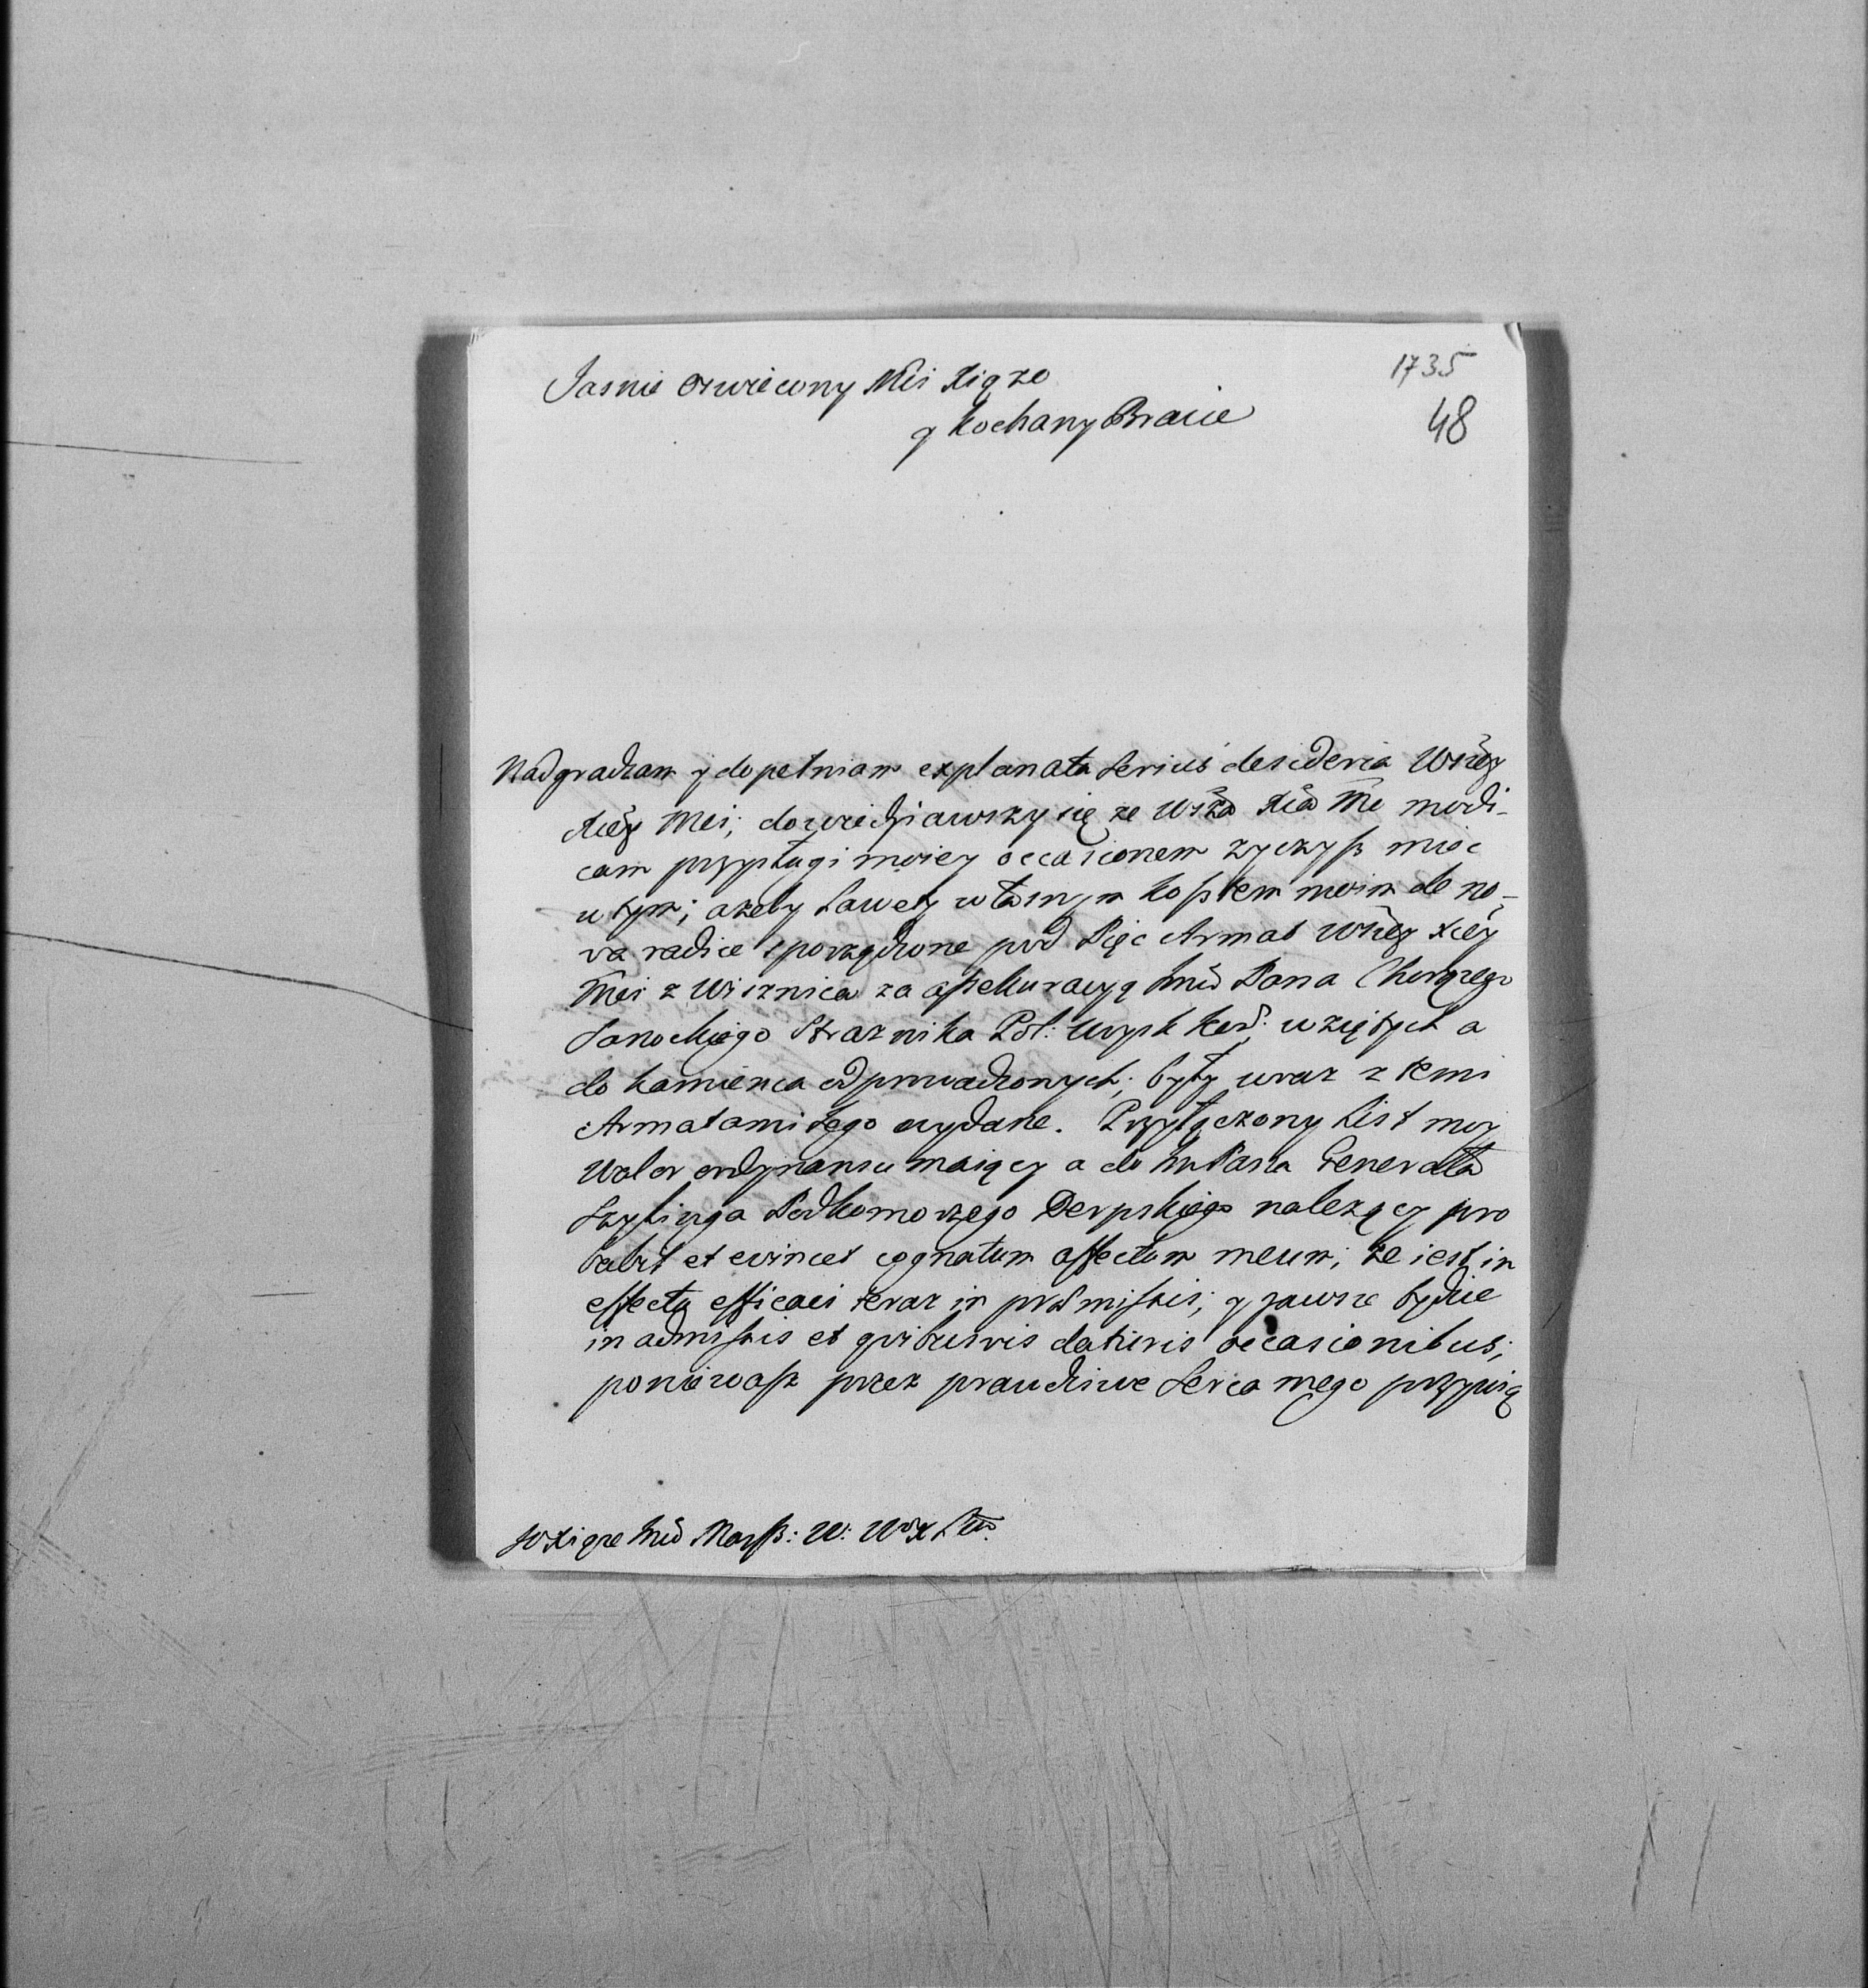 Jasnie oswiecony Mci Xiąze
1735
y kochany Bracie
48
Nadgradzam y dopełniam explanata serius desideria Wszey
Xcey Mci; dowiedziawszy się ze Wsza Xca Mc modi-
cam przysługi moiey occasionem zyczysz miec
w tym; azeby Lawety własnym kosztem moim de no-
va radice sporządzone pod Pięc Armat Wszey Xcey
Mci z Wisznica za assekuracyą Jmci Pana Chorązego
Sanockiego Straznika Pol: Woysk Kor: wziętych a
do Kamienca odprowadzonych; były wraz z temi
Armatami Jego wydane. Przyłączony List moy
Walor ordynansu maiący a do Jm Pana Generała
Szylinga Podkomorzego Derpskiego nalezący pro
babit et evincet cognatum affectum meum; ze iest in
effectu efficaci teraz in præmissis; y zawsze będzie
in admissis et quibusvis daturis occasionibus;
poniewasz przez prawdziwe Serca mego przywią
JO Xiąze Jmci Marsz: W: WoX Litt: